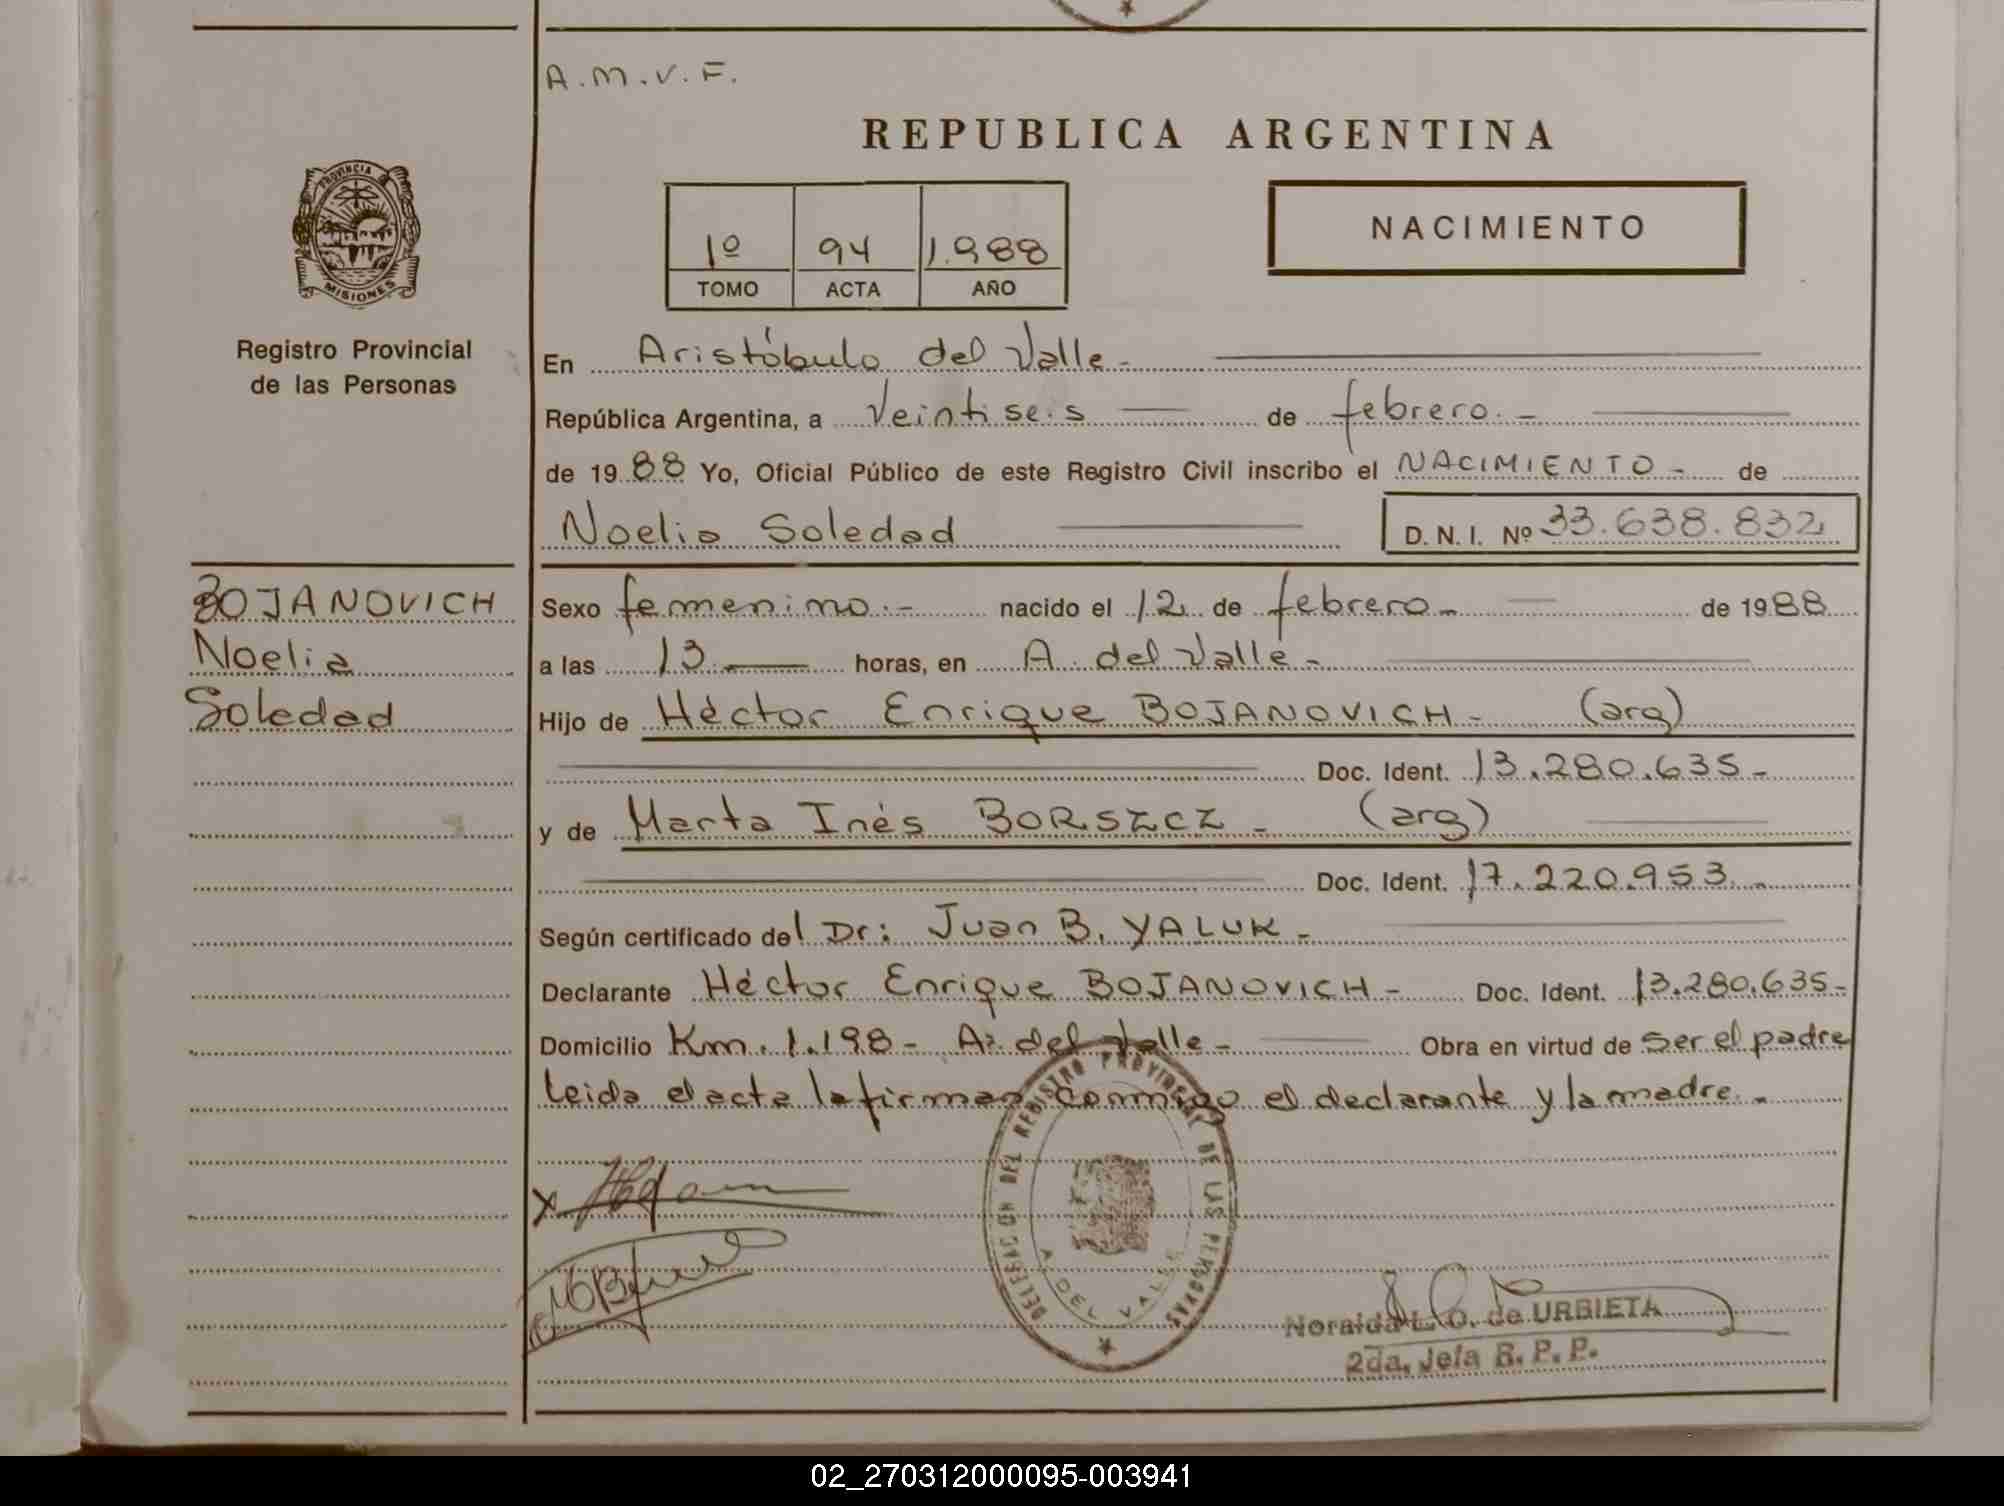 A.M.V.F.
REPUBLICA ARGENTINA
PROVINCIA
MISIONES
Registro Provincial
de las Personas
1º 94 1.988
TOMO ACTA AÑO
NACIMIENTO
En Aristóbulo del Valle.-
República Argentina, a Veintiseis de febrero.-
de 1988 Yo, Oficial Público de este Registro Civil inscribo el NACIMIENTO - de
Noelia Soledad D. N. I. Nº 33.638.832
BOJANOVICH
Noelia
Soledad
Sexo femenino.- nacido el 12 de febrero- de 1988
a las 13 horas, en A. del Valle-
Hijo de Héctor Enrique BOJANOVICH- (arg)
Doc. Ident. 13.280.635-
y de Marta Inés BORSZCZ - (arg)
Doc. Ident. 17.220.953.-
Según certificado del Dr: Juan B. YALUK-
Declarante Héctor Enrique BOJANOVICH- Doc. Ident. 13.280.635-
Domicilio Km. 1.198- A: del Valle- Obra en virtud de ser el padre
leida el acta la firman conmigo el declarante y la madre.-
DELEGACIÓN DEL REGISTRO PROVINCIAL DE LAS PERSONAS
A. DEL VALLE
Noraida L. O. de URBIETA
2da. Jefa R. P. P.
02_270312000095-003941